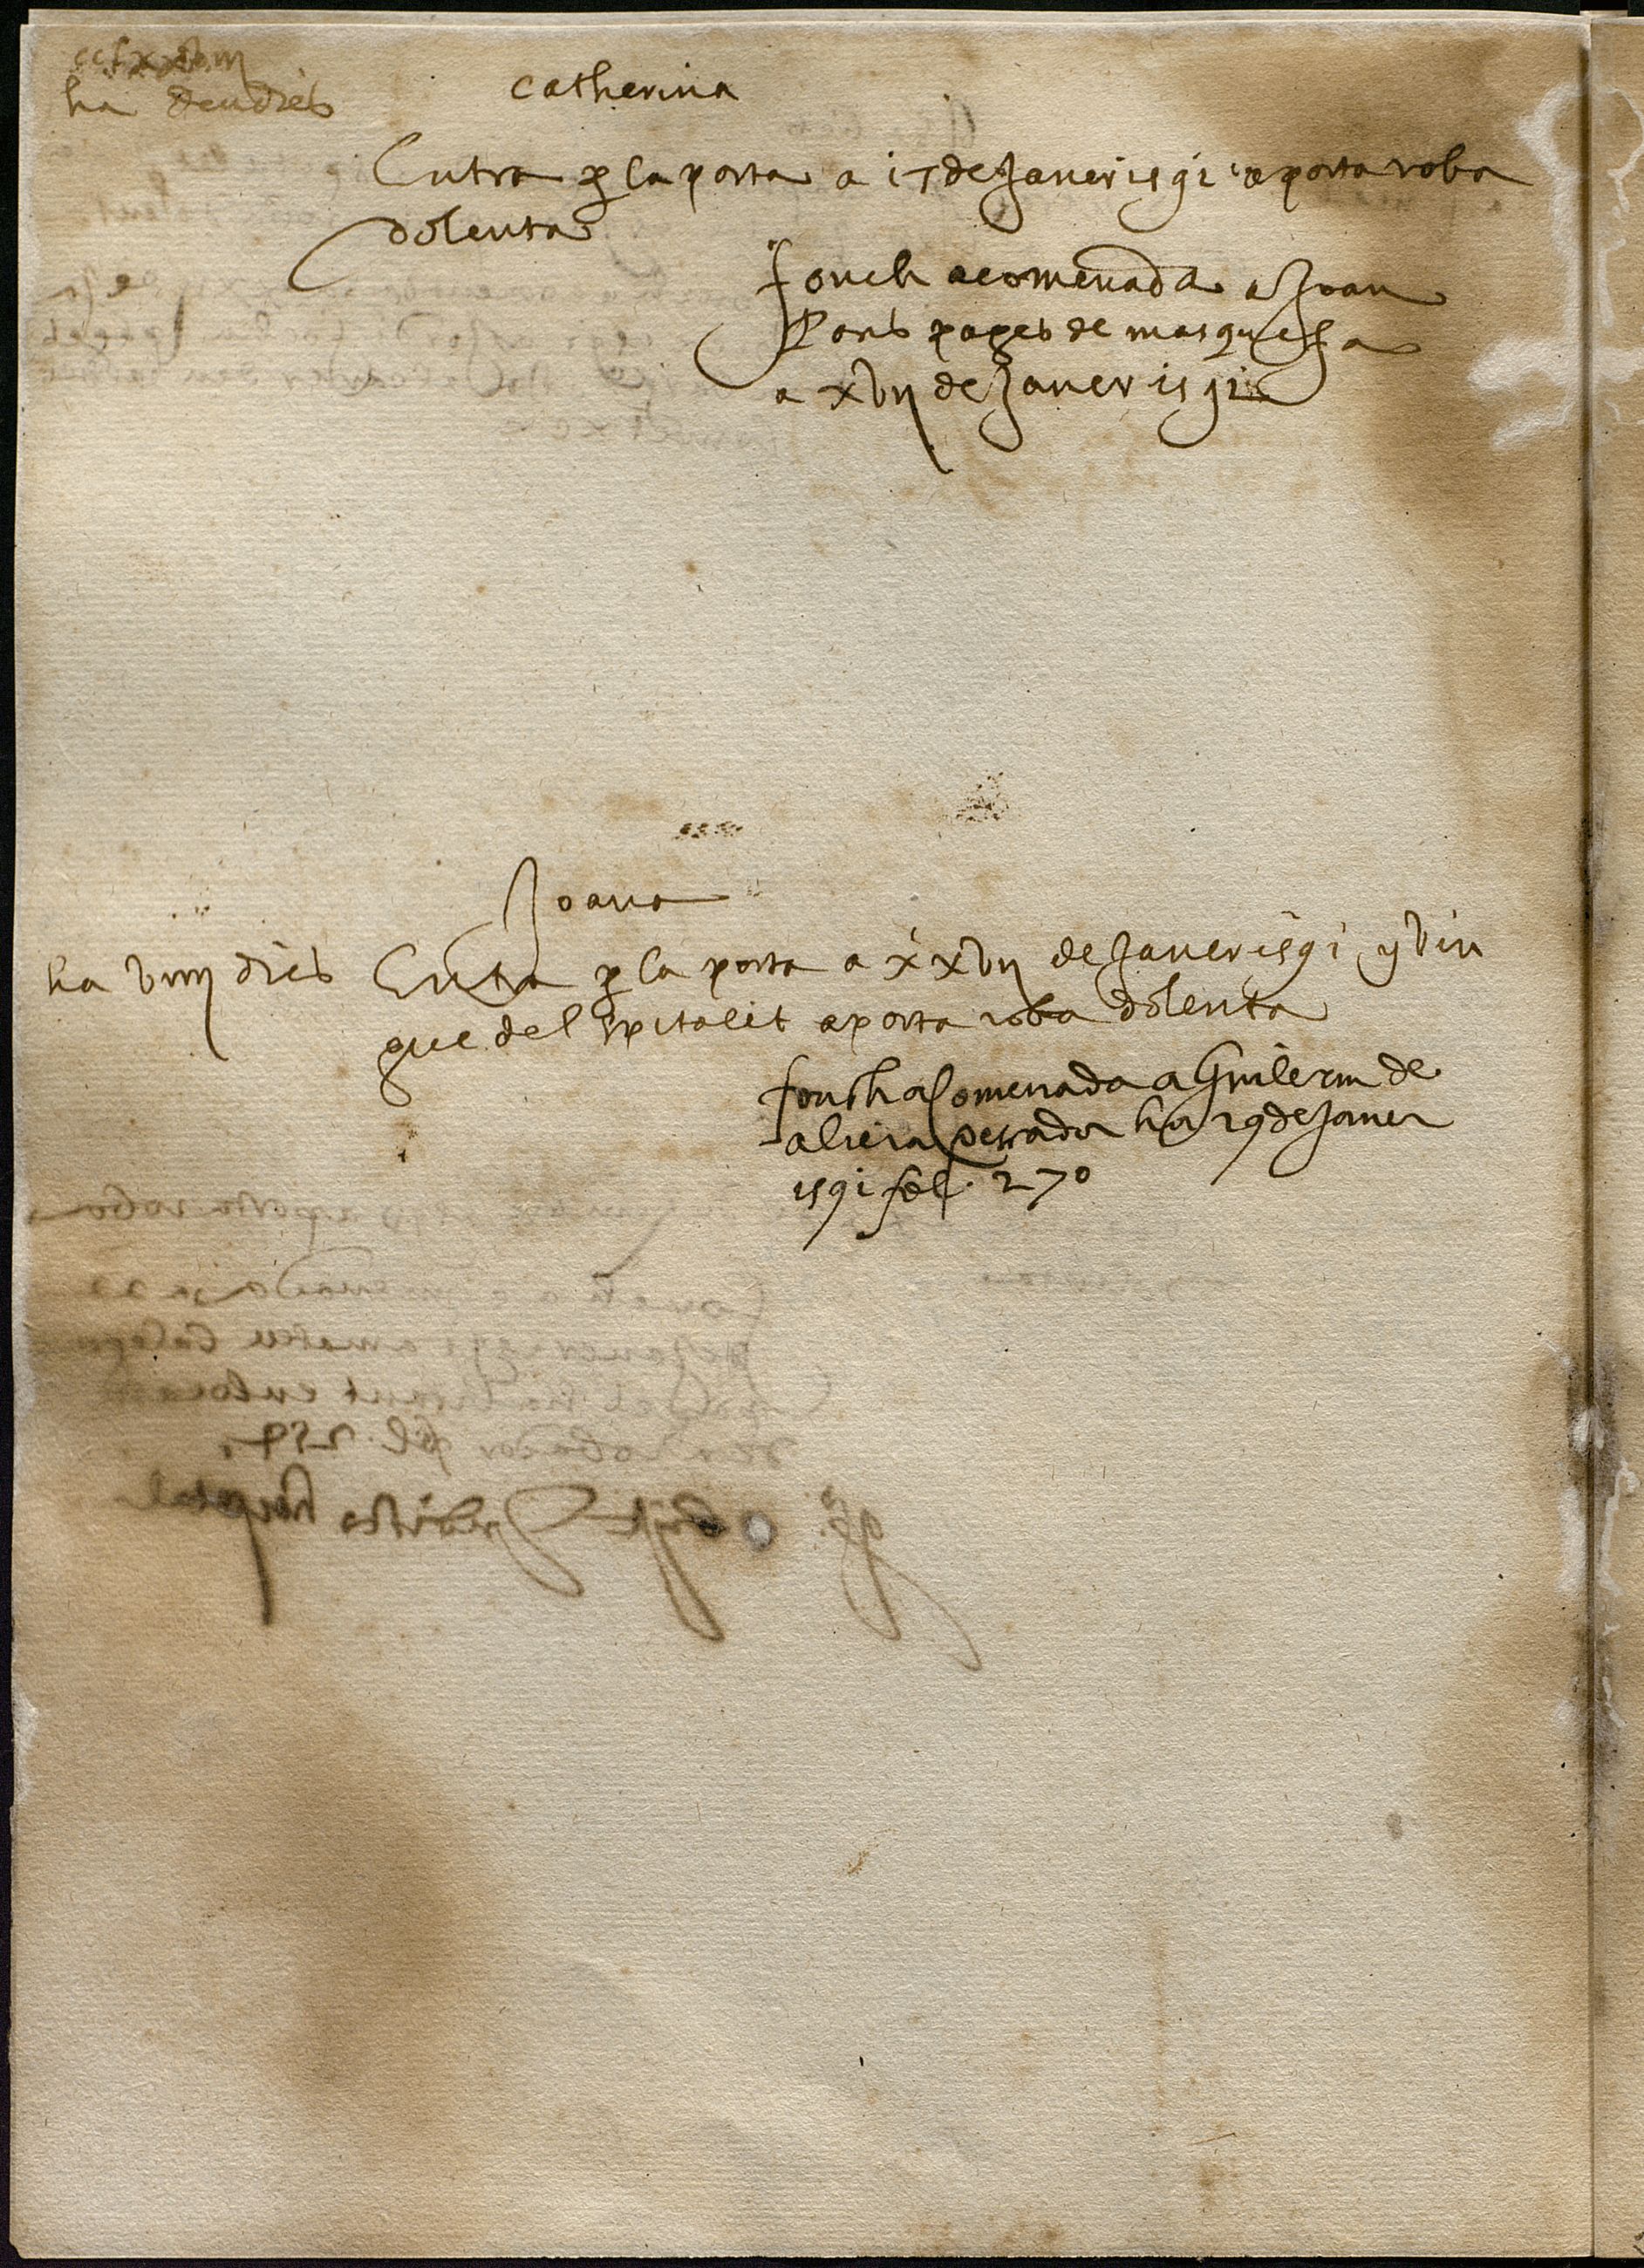 ha deu dies
Catherina
Entra p la porta a 17 de Janer 1591 aporta roba
dolenta
fonch acomenada a Joan
Pons pages de masquefa
a xvij de Janer 1591
Joana
ha viiij dies
Entra p la porta a xxvij de Janer 1591 y vin
gue del spitalet aporta roba dolenta
fonch acomenada a Guilerm de
aliera pescador ha 29 de Janer
1591 fol. 270